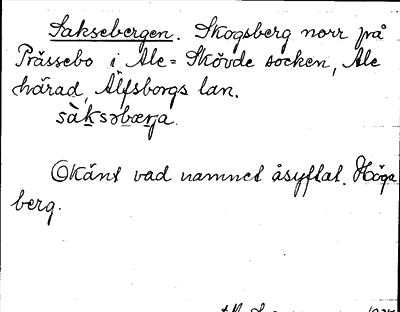 Saksebergen. Skogsberg norr på
Prässebo i Ale=Skövde socken, Ale
härad, Älfsborgs län.
sàksəbærja.
Okänt vad namnet åsyftat. Höga
berg.